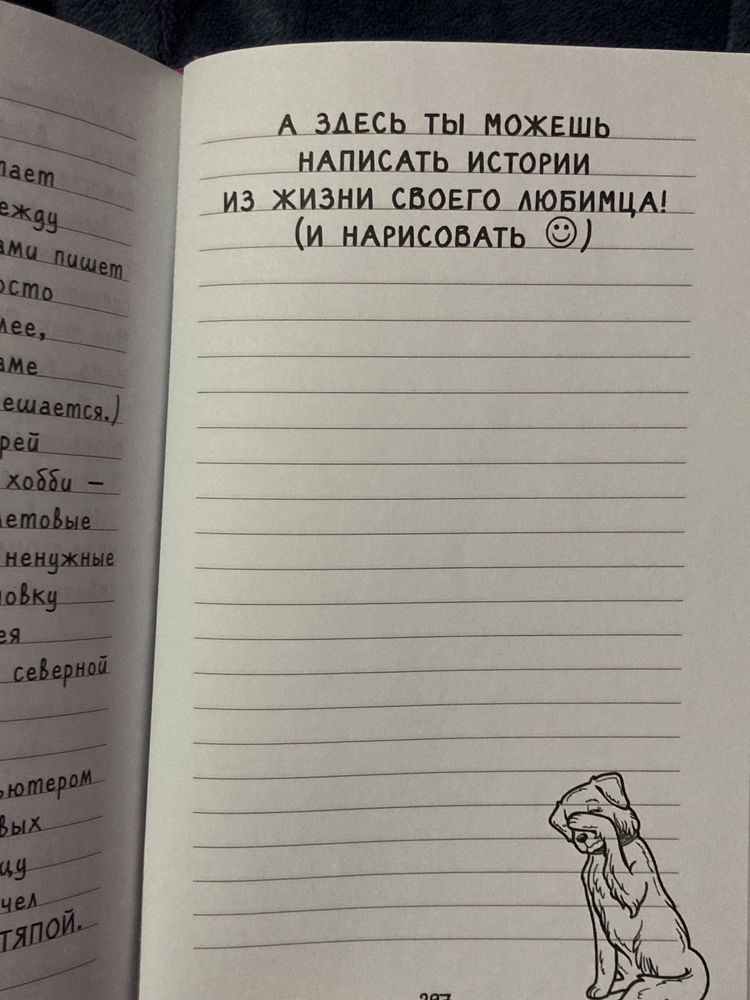 ает
ежду
ами пишет
осто
лее,
аме
ешается.)
рей
хобби –
летовые
ненужные
овку
ея
северной
ьютером
вых
цу
чел
ТЯПОЙ.
А ЗДЕСЬ ТЫ МОЖЕШЬ
НАПИСАТЬ ИСТОРИИ
ИЗ ЖИЗНИ СВОЕГО ЛЮБИМЦА!
(И НАРИСОВАТЬ ☺)